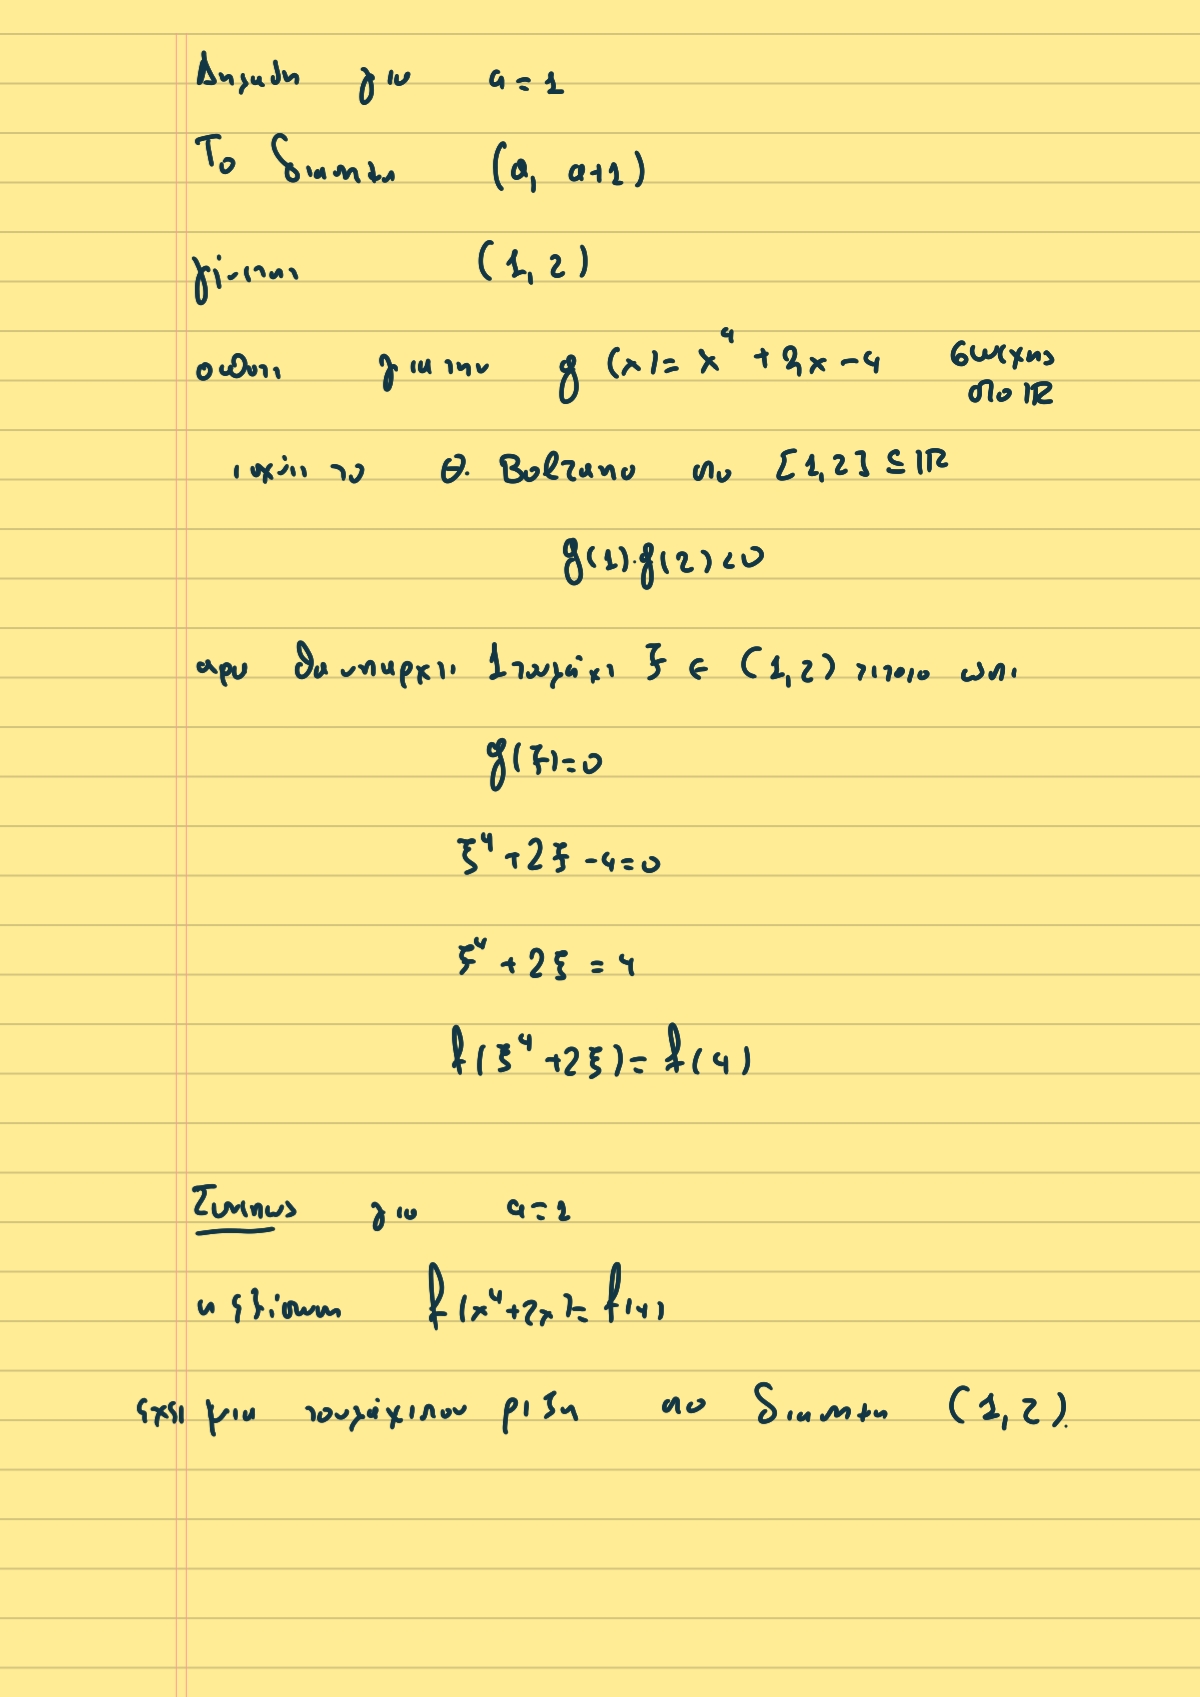 Δηλαδη για a = 1
Το διαστημα (a, a+1)
γίνεται (1, 2)
οποτε για την g(x) = x⁴ + 2x - 4 συνεχης
στο ℝ
ισχύει το Θ. Bolzano στο [1,2] ⊆ ℝ
g(1)·g(2) < 0
αρα θα υπαρχει 1 τουλάχι ξ ∈ (1,2) τετοιο ωστε
g(ξ) = 0
ξ⁴ + 2ξ - 4 = 0
ξ⁴ + 2ξ = 4
f(ξ⁴ + 2ξ) = f(4)
Συνεπως για a = 1
η εξίσωση f(x⁴+2x) = f(4)
εχει μια τουλάχιστον ριζη στο διαστημα (1, 2).